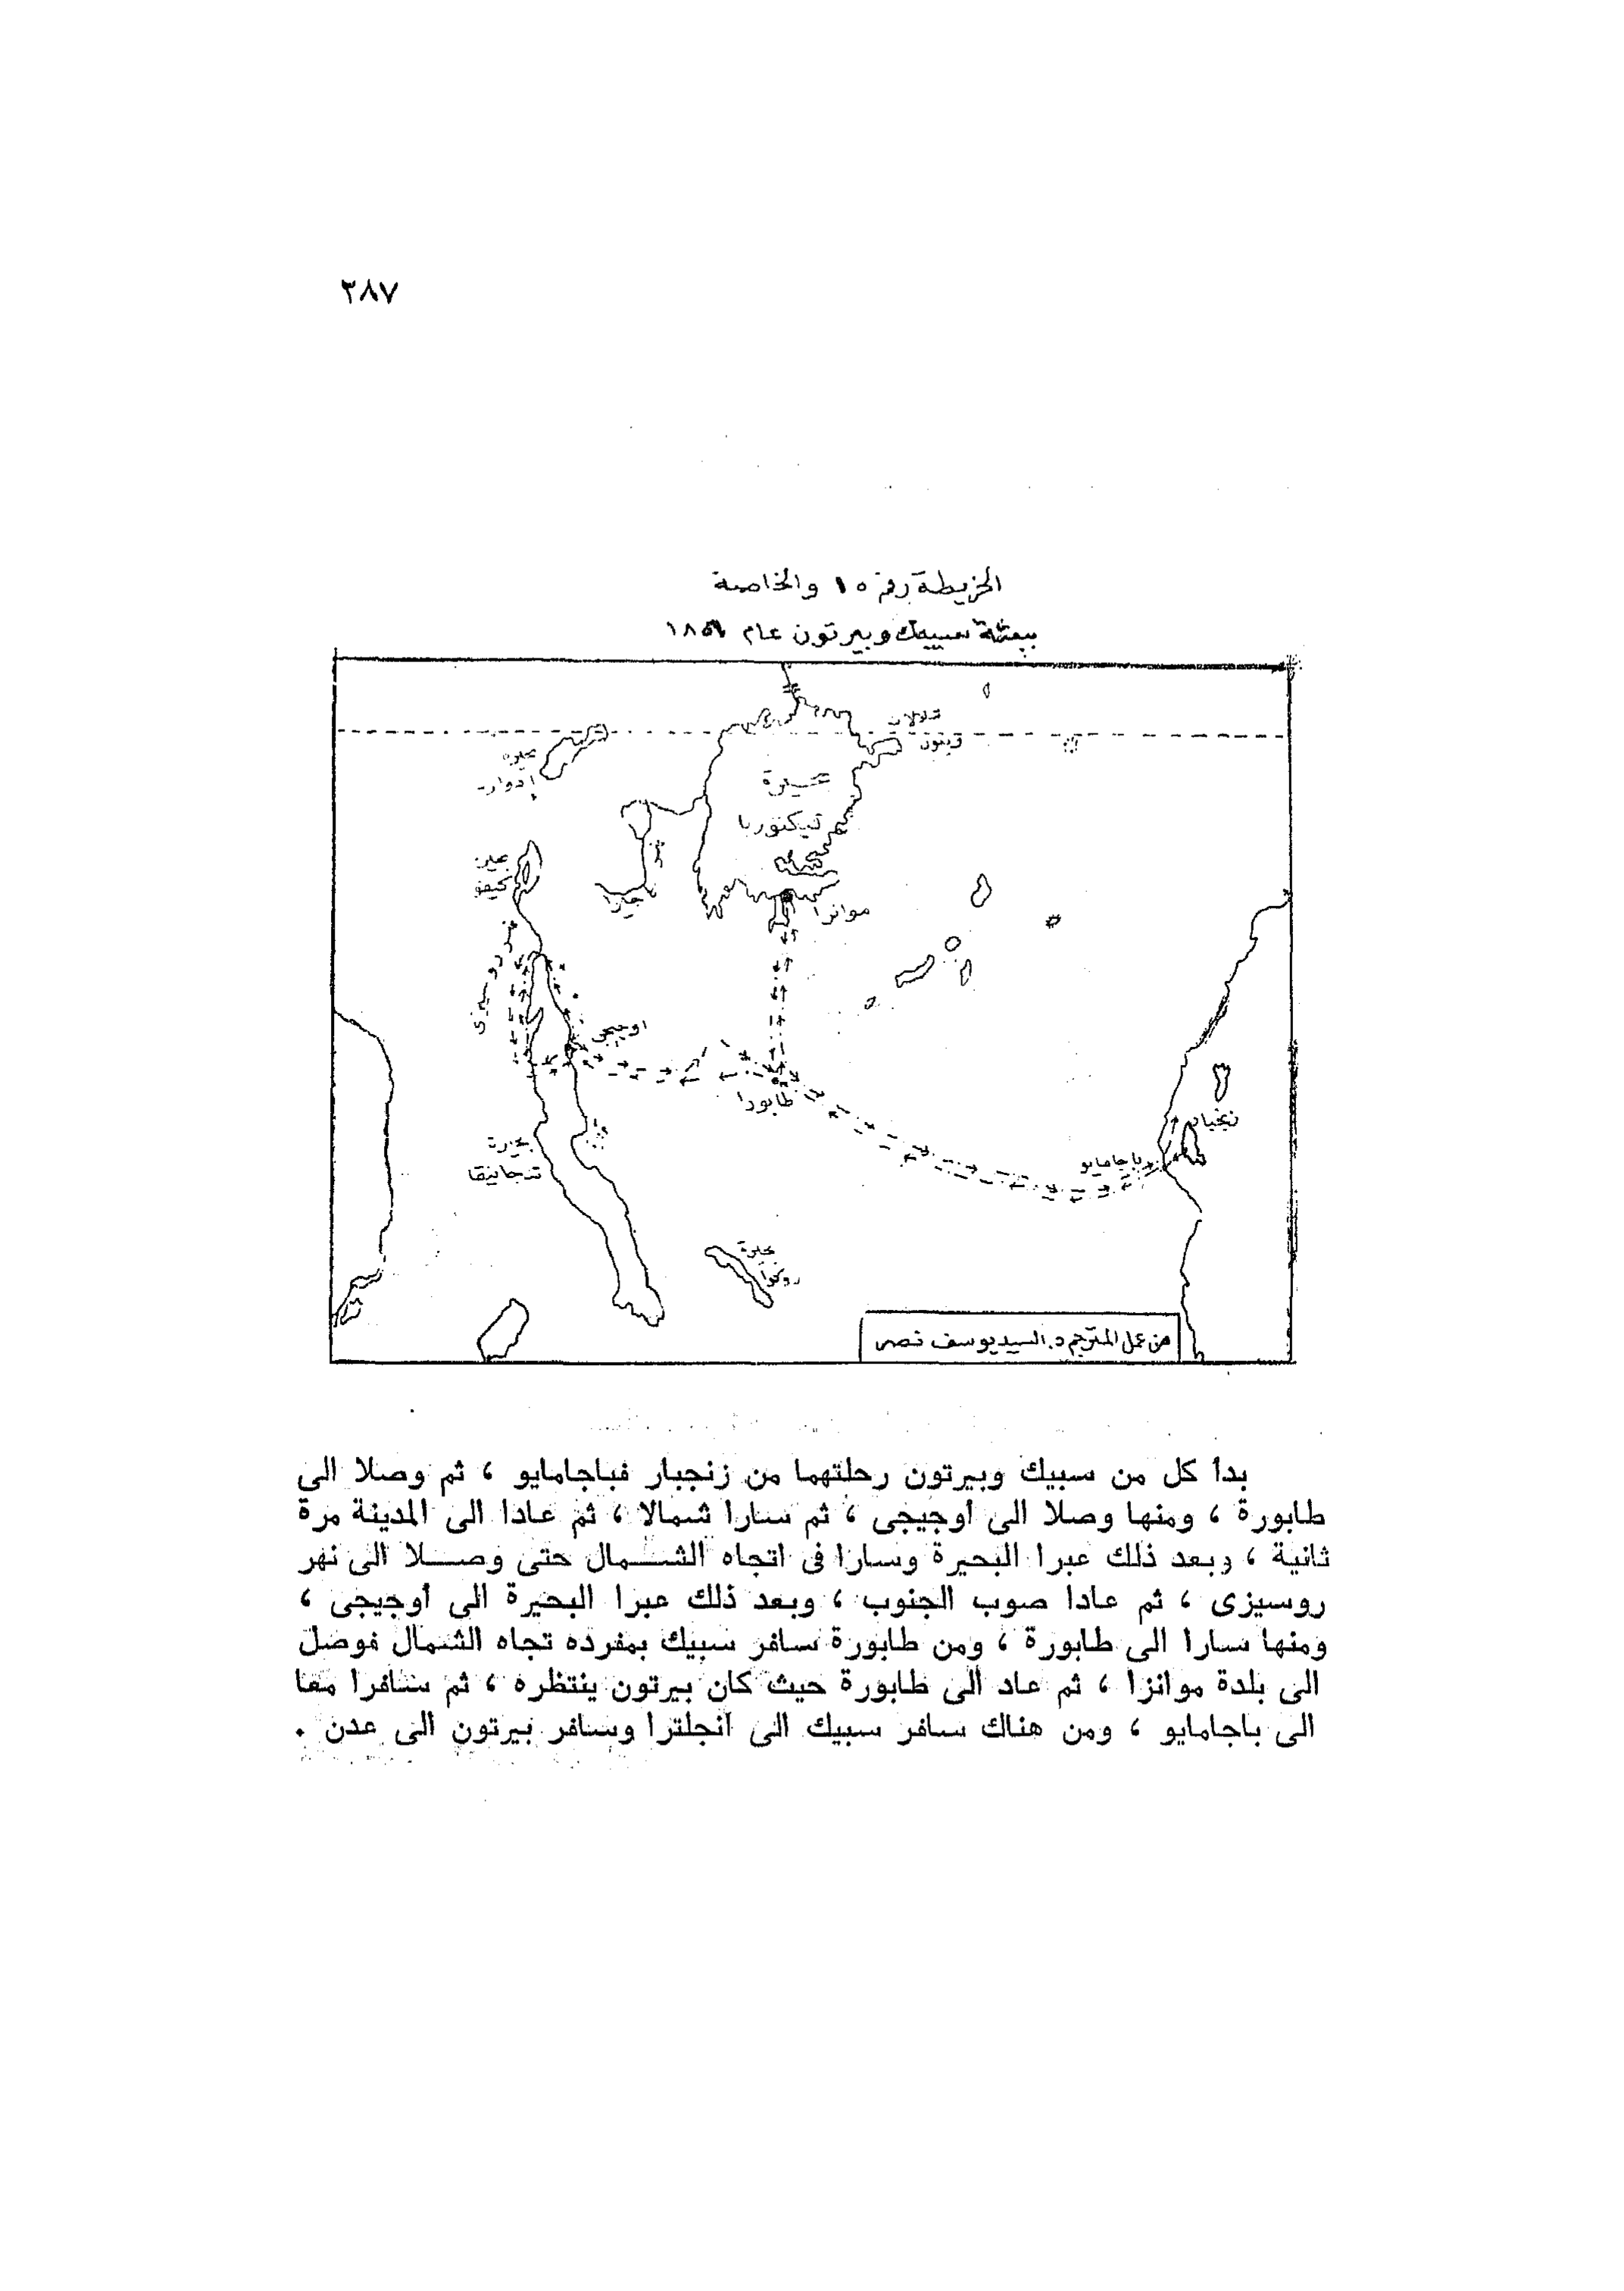 ٣٨٧
الخريطة رقم ١٥ والخاصة
ببعثة سبيك وبيرتون عام
شلالات
بحيرة
ادوارد
بحيرة
فيكتوريا
كيفو
نهر
موانزا
نهر روسيزى
اوجيجى
طابورا
زنجبار
باجامايو
بحيرة
تنجانيقا
بحيرة
روكوا
من عمل المترجم د. السيد يوسف نصر
بدأ كل من سبيك وبيرتون رحلتهما من زنجبار فباجامايو ، ثم وصلا الى
طابورة ، ومنها وصلا الى أوجيجى ، ثم سارا شمالا ، ثم عادا الى المدينة مرة
ثانية ، وبعد ذلك عبرا البحيرة وسارا فى اتجاه الشمال حتى وصلا الى نهر
روسيزى ، ثم عادا صوب الجنوب ، وبعد ذلك عبرا البحيرة الى أوجيجى ،
ومنها سارا الى طابورة ، ومن طابورة سافر سبيك بمفرده تجاه الشمال فوصل
الى بلدة موانزا ، ثم عاد الى طابورة حيث كان بيرتون ينتظره ، ثم سافرا معا
الى باجامايو ، ومن هناك سافر سبيك الى انجلترا وسافر بيرتون الى عدن .